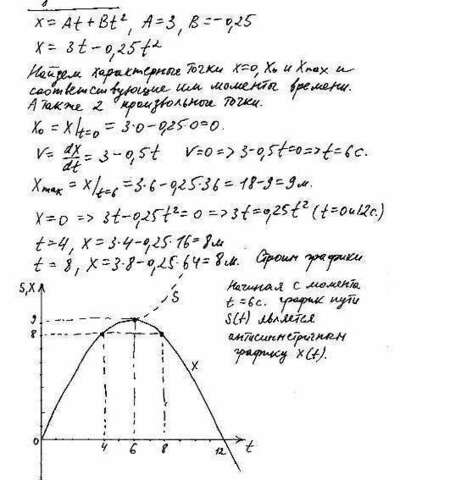 x = At + Bt², A = 3, B = -0,25
x = 3t - 0,25t²
Найдем характерные точки x=0, x₀ и xmax и
соответствующие им моменты времени.
А также 2 произвольные точки.
x₀ = x|t=0 = 3·0 - 0,25·0 = 0.
V = dx/dt = 3 - 0,5t V=0 => 3-0,5t=0 => t=6 с.
Xmax = x|t=6 = 3·6 - 0,25·36 = 18 - 9 = 9 м.
X=0 => 3t - 0,25t² = 0 => 3t = 0,25t² (t=0 и 12 с.)
t=4, x = 3·4 - 0,25·16 = 8 м
t = 8, x = 3·8 - 0,25·64 = 8 м. Строим графики
Начиная с момента
t = 6 с. график пути
S(t) является
антисимметричным
графику x(t).
S,X
S
9
8
X
0
4
6
8
12
t